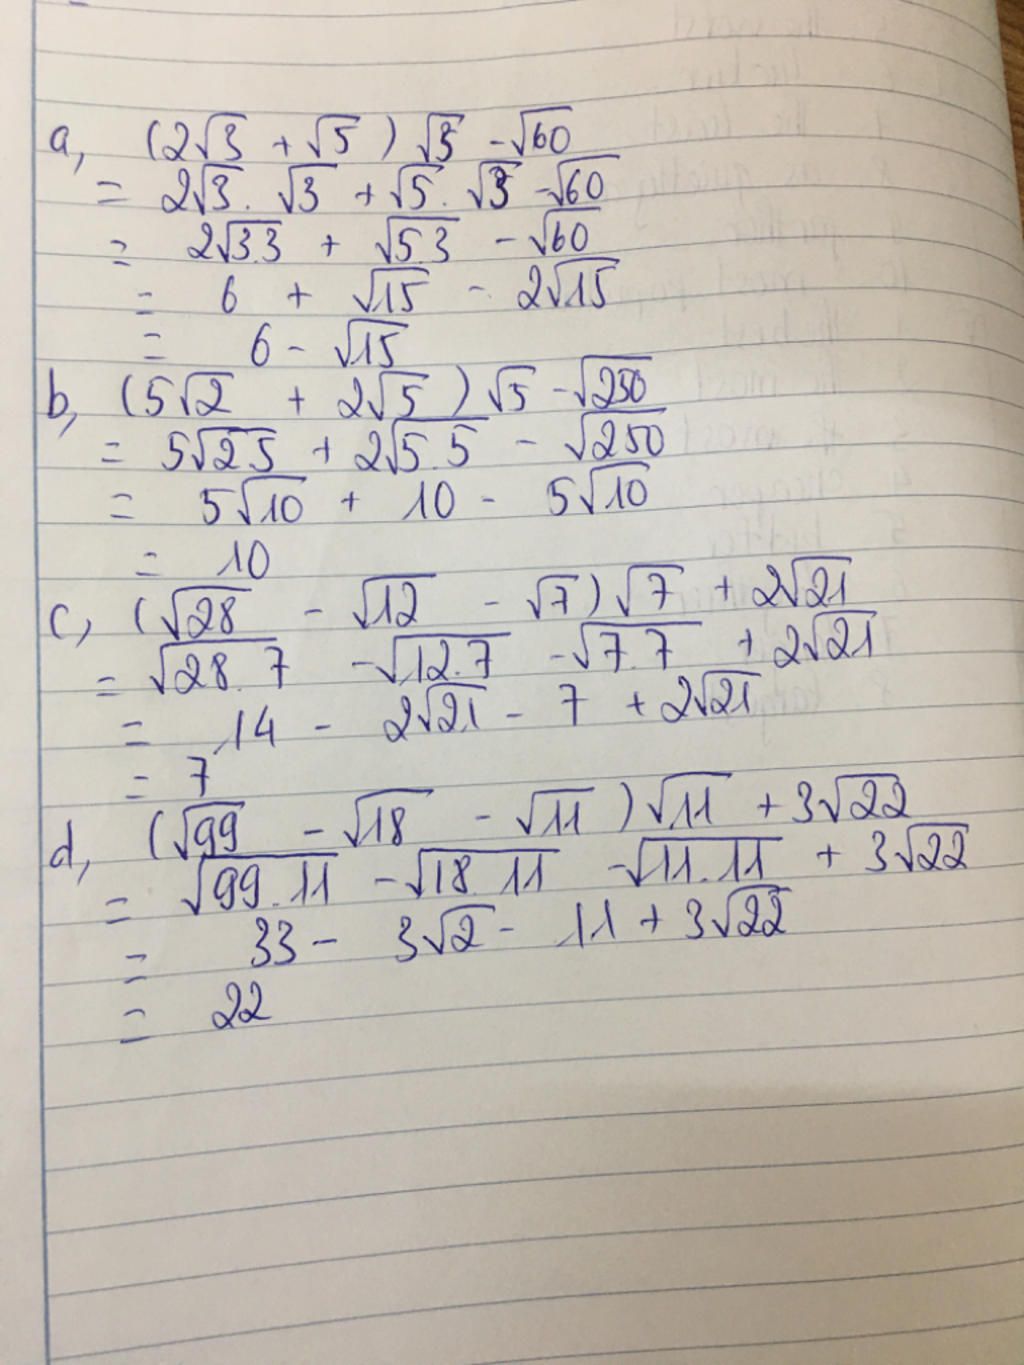 a, (2√3 + √5) √3 - √60
= 2√3. √3 + √5. √3 - √60
= 2√3.3 + √5.3 - √60
= 6 + √15 - 2√15
= 6 - √15
b, (5√2 + 2√5) √5 - √250
= 5√2.5 + 2√5.5 - √250
= 5√10 + 10 - 5√10
= 10
c, (√28 - √12 - √7) √7 + 2√21
= √28.7 - √12.7 - √7.7 + 2√21
= 14 - 2√21 - 7 + 2√21
= 7
d, (√99 - √18 - √11) √11 + 3√22
= √99.11 - √18.11 - √11.11 + 3√22
= 33 - 3√2 - 11 + 3√22
= 22